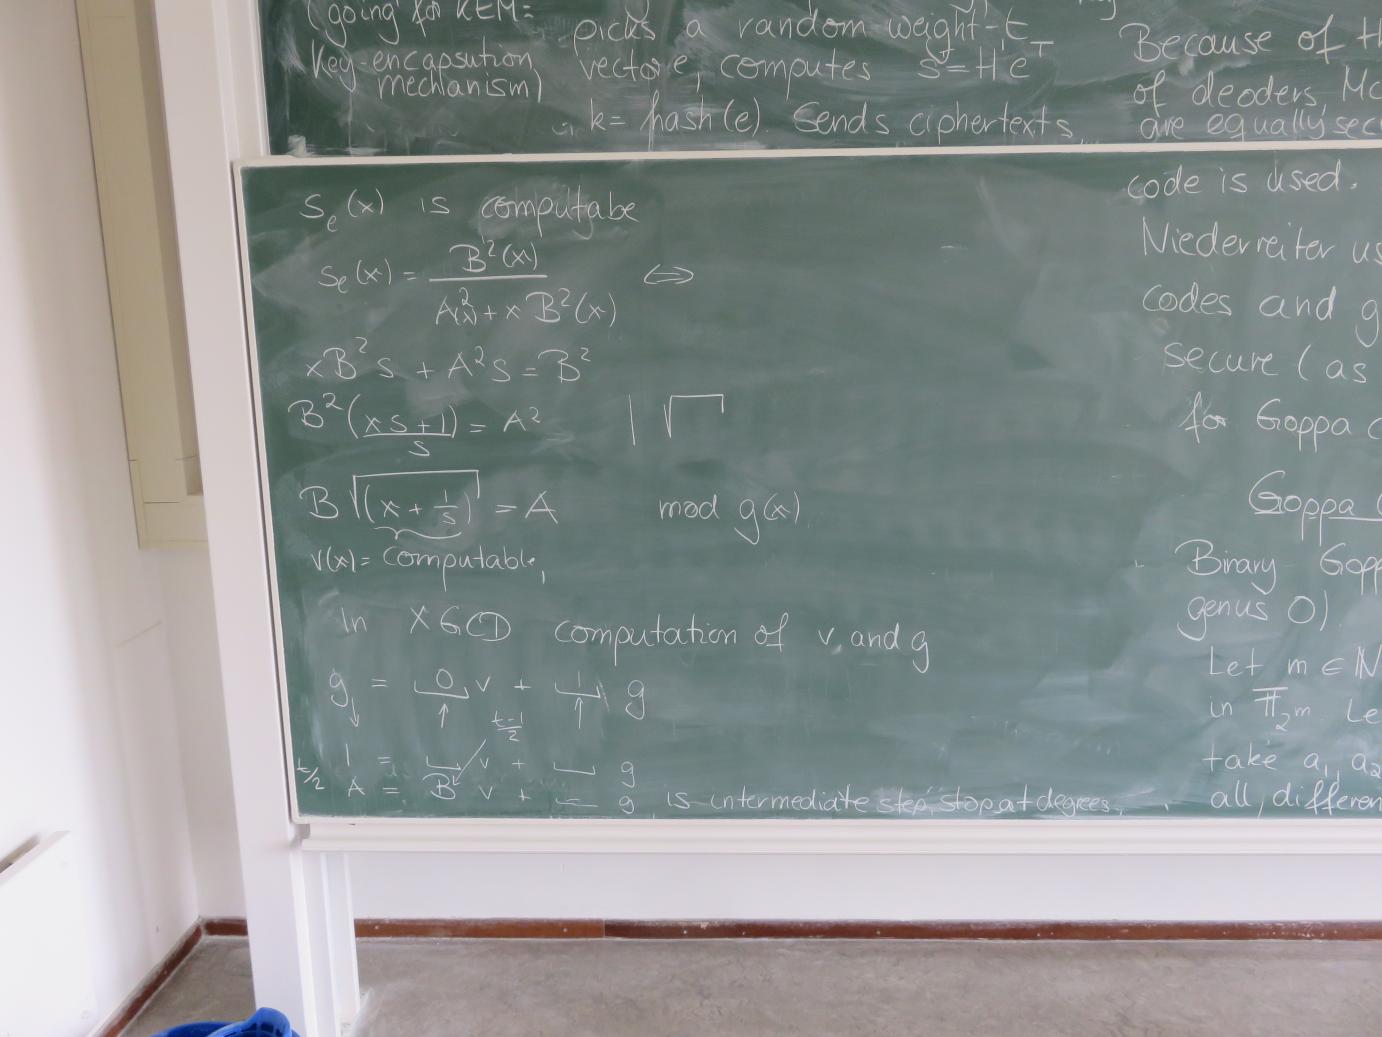 (going for KEM:
Key-encapsution
mechanism)
picks a random weight-t
vector e, computes s = H e^T
k = hash(e). Sends ciphertext s.
Because of
of deoders, Mc
are equally sec
S_e(x) is computabe
S_e(x) = B²(x) / (A²(x) + x B²(x)) ⇔
xB²s + A²s = B²
B²((xs+1)/s) = A² | √
B √(x + 1/s) = A mod g(x)
v(x) = computable,
In XGCD computation of v and g
g = 0 v + 1 g
↓ ↑ (t-1)/2 ↑
1 = v + g
t/2 A = B v + g is intermediate step, stop at degrees
code is used.
Niederreiter us
codes and g
secure (as
for Goppa c
Goppa
Binary Gopp
genus 0).
Let m ∈ N
in F_2^m. Le
take a_1, a_2
all different